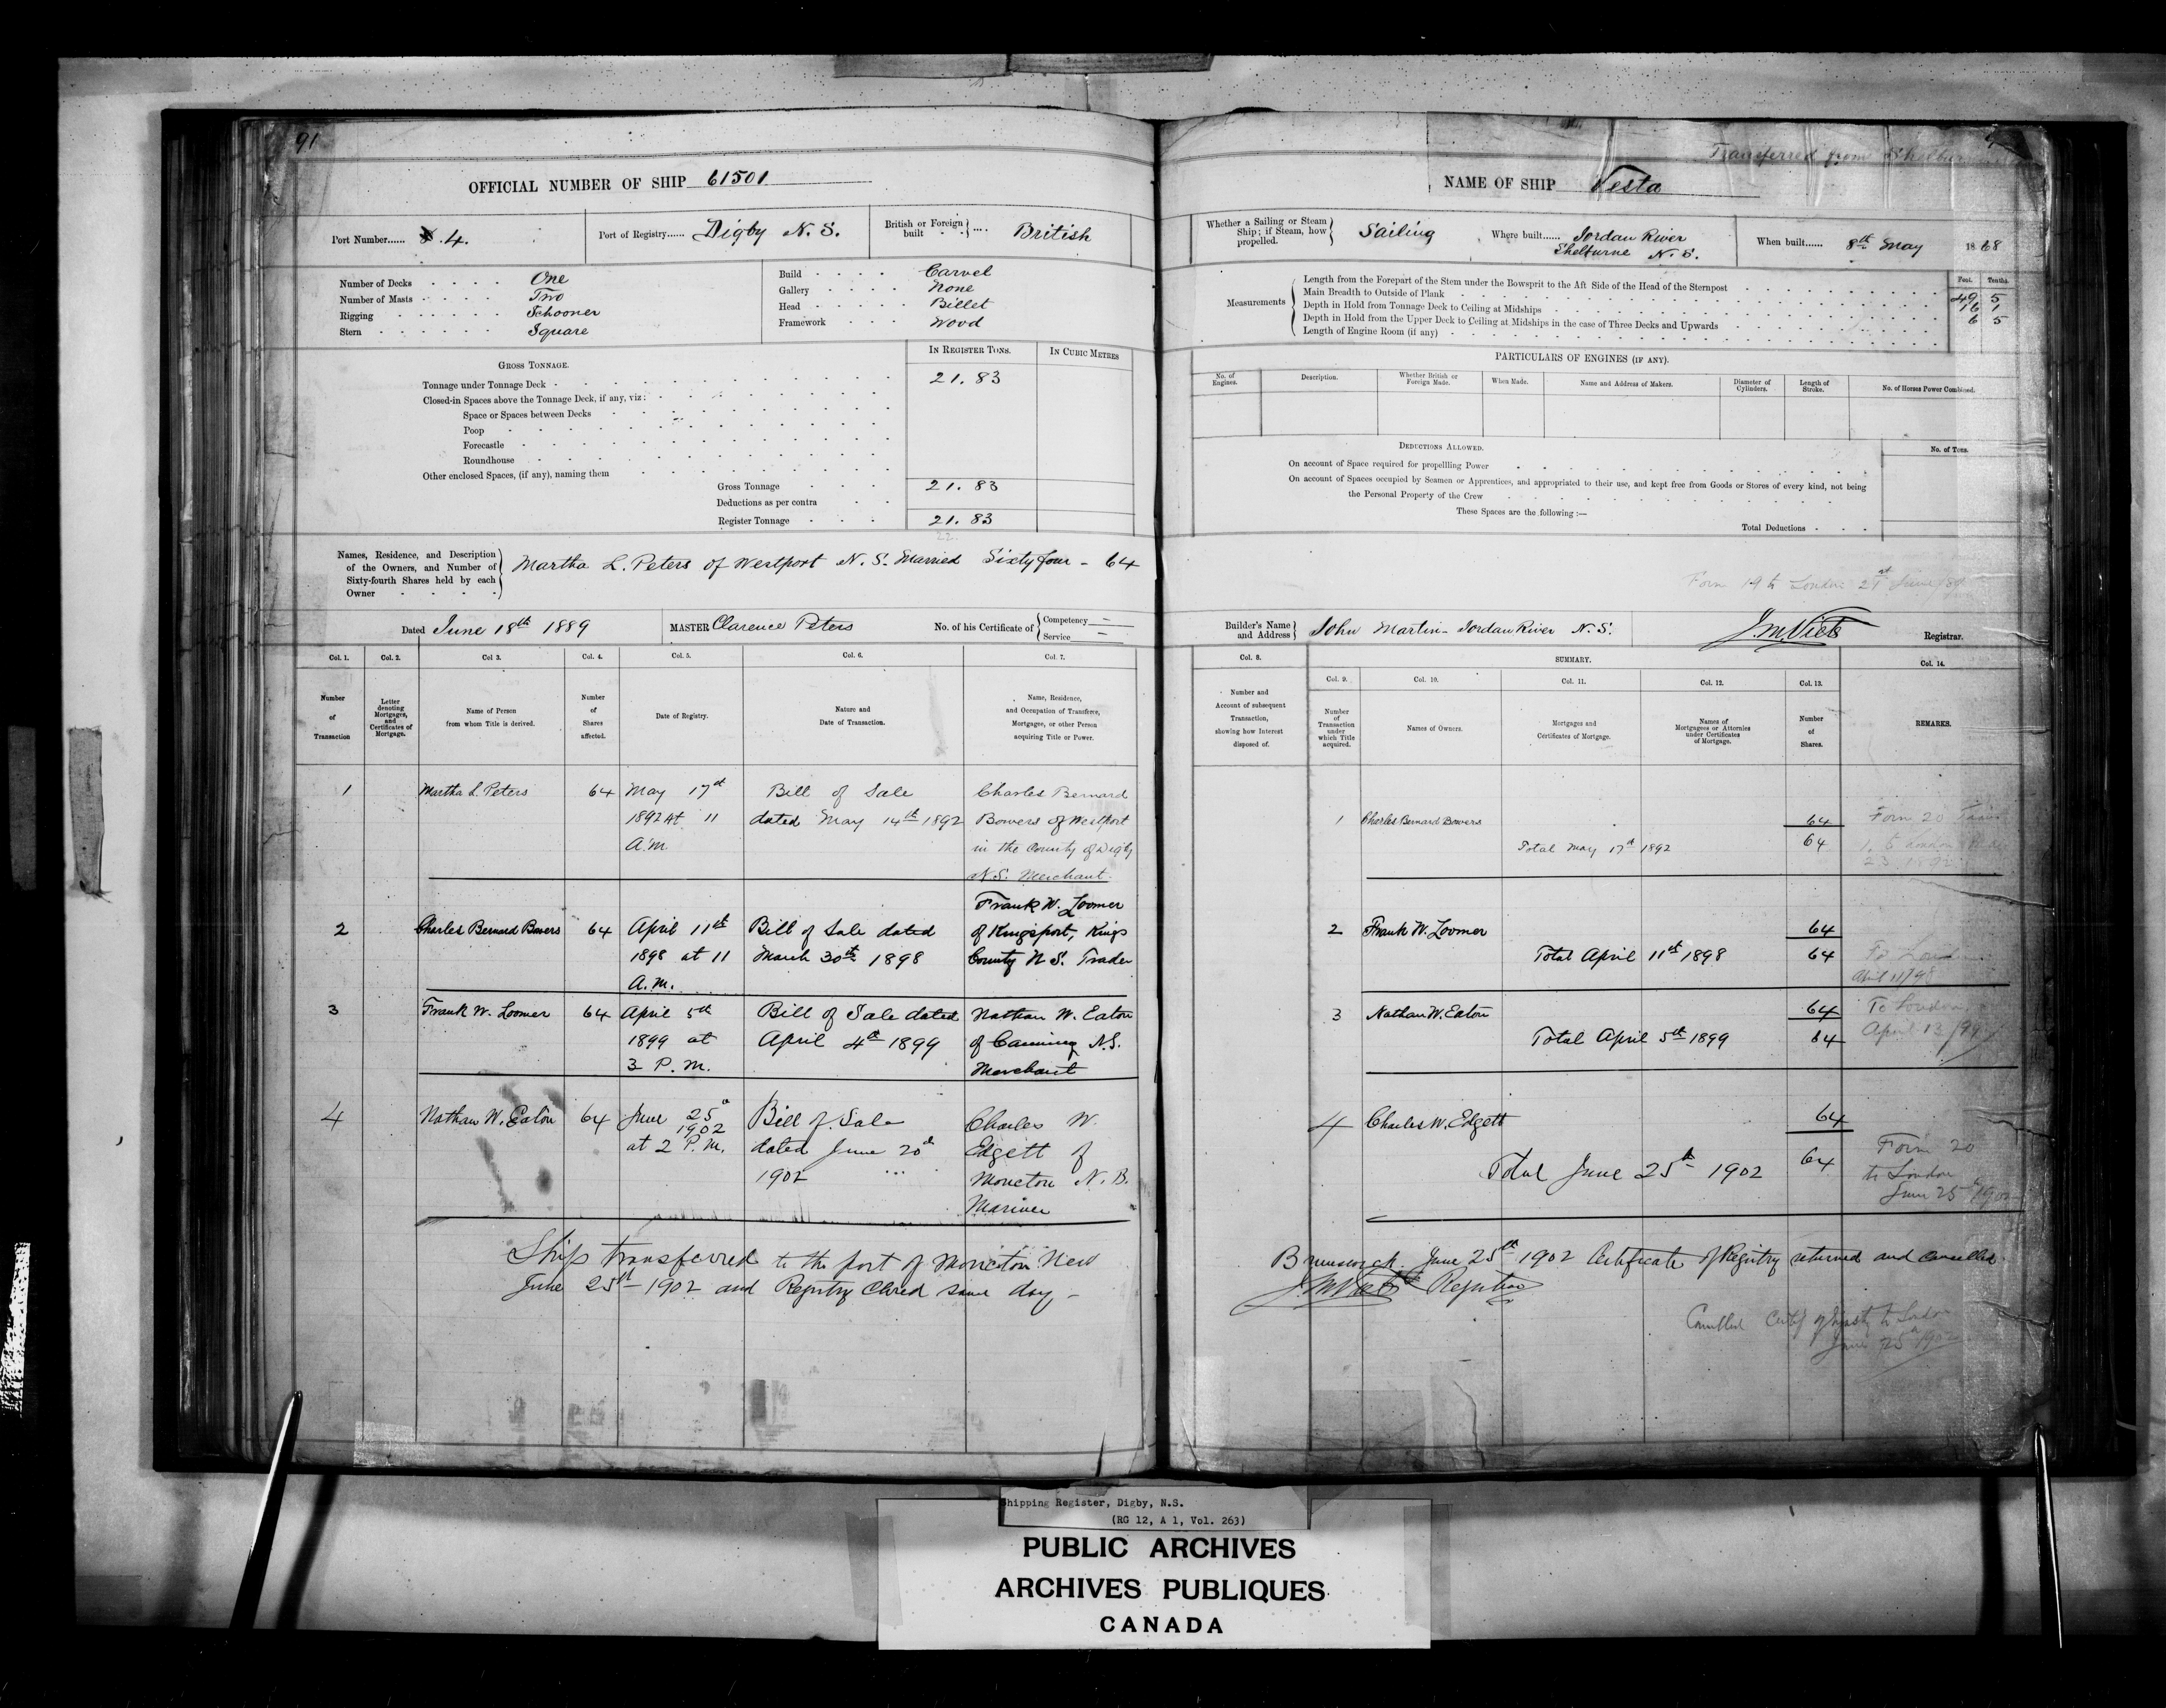 91
OFFICIAL NUMBER OF SHIP 61501
Port Number...... 4.
Port of Registry...... Digby N. S.
British or Foreign built .... British
Number of Decks One
Number of Masts Two
Rigging Schooner
Stern Square
Build Carvel
Gallery None
Head Billet
Framework Wood
GROSS TONNAGE.
IN REGISTER TONS.
IN CUBIC METRES
Tonnage under Tonnage Deck 21.83
Closed-in Spaces above the Tonnage Deck, if any, viz:
Space or Spaces between Decks
Poop
Forecastle
Roundhouse
Other enclosed Spaces, (if any), naming them
Gross Tonnage 21.83
Deductions as per contra
Register Tonnage 21.83
22
Names, Residence, and Description
of the Owners, and Number of
Sixty-fourth Shares held by each
Owner
Martha L. Peters of Westport N. S. Married Sixty four - 64
Dated June 18th 1889
MASTER Clarence Peters
No. of his Certificate of { Competency —
Service —
Col. 1. Col. 2. Col 3. Col. 4. Col. 5. Col. 6. Col. 7.
Number of Transaction
Letter denoting Mortgages, and Certificates of Mortgage.
Name of Person from whom Title is derived.
Number of Shares affected.
Date of Registry.
Nature and Date of Transaction.
Name, Residence, and Occupation of Transferee, Mortgagee, or other Person acquiring Title or Power.
1 Martha L. Peters 64 May 17th Bill of Sale Charles Bernard
1892 At 11 dated May 14th 1892 Bowers of Westport
A.M. in the County of Digby
N.S. Merchant.
Frank W. Loomer
2 Charles Bernard Bowers 64 April 11th Bill of Sale dated of Kingsport, Kings
1898 at 11 March 30th 1898 County N S. Trader
A.M.
3 Frank W. Loomer 64 April 5th Bill of Sale dated Nathan W. Eaton
1899 at April 4th 1899 of Canning N.S.
3 P.M. Merchant
4 Nathan W. Eaton 64 June 25th Bill of Sale Charles W.
1902
at 2 P.M. dated June 20th Edgett of
1902 Moncton N.B.
Mariner
Ship transferred to the port of Moncton New
June 25th 1902 and Registry closed same day -
Transferred from
NAME OF SHIP Vesta
Whether a Sailing or Steam
Ship; if Steam, how
propelled. Sailing
Where built...... Jordan River
Shelburne N. S.
When built...... 8th May 1868
Measurements
Feet. Tenths.
Length from the Forepart of the Stem under the Bowsprit to the Aft Side of the Head of the Sternpost 49 5
Main Breadth to Outside of Plank 16 1
Depth in Hold from Tonnage Deck to Ceiling at Midships 6 5
Depth in Hold from the Upper Deck to Ceiling at Midships in the case of Three Decks and Upwards
Length of Engine Room (if any)
PARTICULARS OF ENGINES (IF ANY).
No. of Engines.
Description.
Whether British or Foreign Made.
When Made.
Name and Address of Makers.
Diameter of Cylinders.
Length of Stroke.
No. of Horses Power Combined.
DEDUCTIONS ALLOWED.
No. of Tons.
On account of Space required for propellling Power
On account of Spaces occupied by Seamen or Apprentices, and appropriated to their use, and kept free from Goods or Stores of every kind, not being
the Personal Property of the Crew
These Spaces are the following :—
Total Deductions
Form 19 to London 21st June
Builder's Name
and Address John Martin - Jordan River N. S.
Registrar.
Col. 8. SUMMARY. Col. 14.
Col. 9. Col. 10. Col. 11. Col. 12. Col. 13.
Number and Account of subsequent Transaction, showing how Interest disposed of.
Number of Transaction under which Title acquired.
Names of Owners.
Mortgages and Certificates of Mortgage.
Names of Mortgagees or Attornies under Certificates of Mortgage.
Number of Shares.
REMARKS.
1 Charles Bernard Bowers 64 Form 20
Total May 17th 1892 64
2 Frank W. Loomer 64
Total April 11th 1898 64
April 11/98
3 Nathan W. Eaton 64 To London
Total April 5th 1899 64 April 13/99
4 Charles W. Edgett 64
Total June 25th 1902 64 Form 20
to London
June 25th 1902
Brunswick June 25th 1902 Certificate of Registry returned and cancelled.
Registrar
Cancelled Certif of Registry to London
June 25th 1902
Shipping Register, Digby, N.S.
(RG 12, A 1, Vol. 263)
PUBLIC ARCHIVES
ARCHIVES PUBLIQUES
CANADA